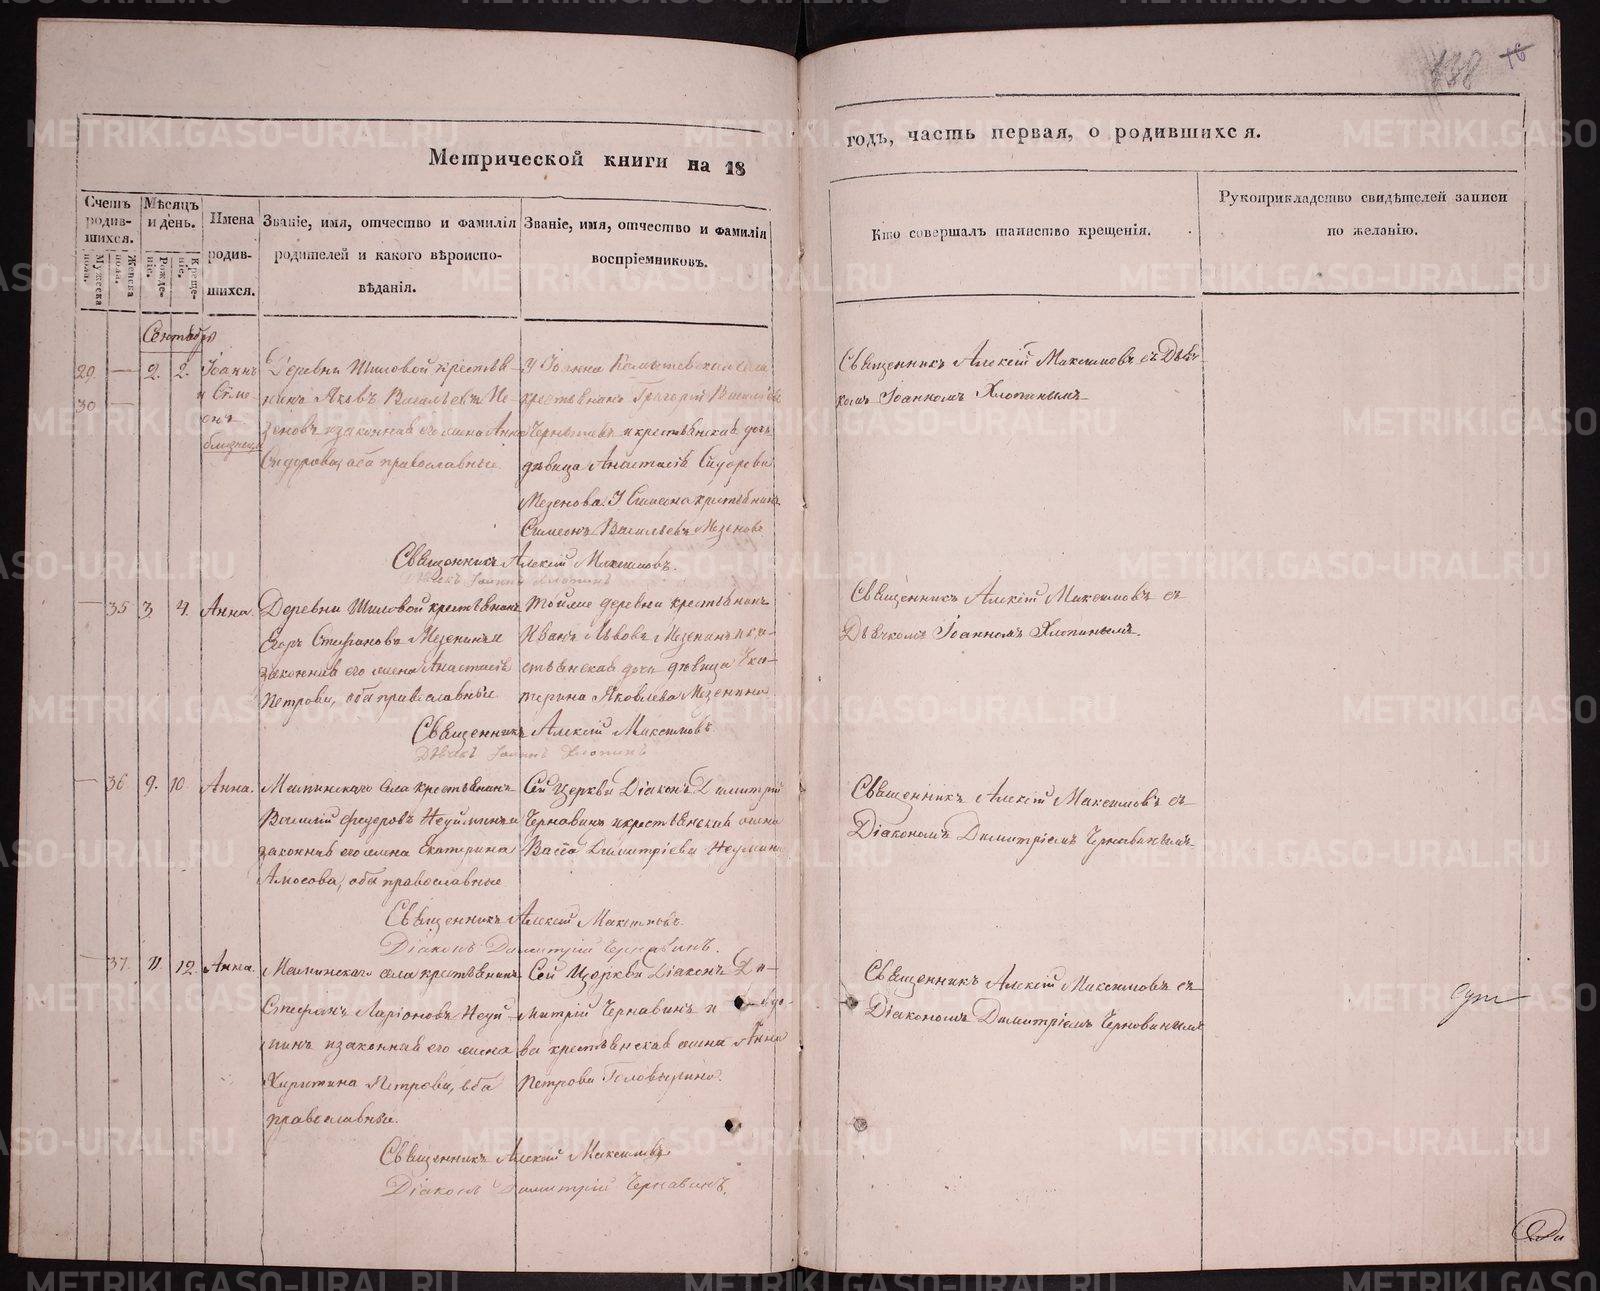 138 16
Метрической книги на 18
годъ, часть первая, о родившихся.
Счетъ родив-шихся.
Мужеска пола.
Женска пола.
Мѣсяцъ и день.
Рожде-ніе.
Креще-ніе.
Имена родив-шихся.
Званіе, имя, отчество и фамилія
родителей и какого вѣроиспо-
вѣданія.
Званіе, имя, отчество и фамилія
воспріемниковъ.
Кто совершалъ таинство крещенія.
Рукоприкладство свидѣтелей записи
по желанію.
Сентябрь
29. — 2. 2.
30 —
Іоаннъ
и Сѵме-
онъ
близнецы
Деревни Шиловой крестья-
нинъ Яковъ Васильевъ Ме-
зеновъ и законная его жена Анна
Сидорова, оба православные.
У Іоанна села
крестьянинъ Григорій Васильевъ
и крестьянская дочь
дѣвица Анастасія Сидорова
Мезенова. У Симеона крестьянинъ
Симеонъ Васильевъ Мезеновъ
Священникъ Алексій Максимовъ съ Дьяч-
комъ Іоанномъ Хлопинымъ
Священникъ Алексій Максимовъ.
Дьячекъ Іоаннъ Хлопинъ
— 35 3 4. Анна.
Деревни Шиловой крестьянинъ
Егоръ Стефановъ Мезенинъ и
законная его жена Анастасія
Петрова, оба православные
Тойже деревни крестьянинъ
Иванъ Львовъ Мезенинъ и кре-
стьянская дочь дѣвица Ека-
терина Яковлева Мезенина
Священникъ Алексій Максимовъ съ
Дьячкомъ Іоанномъ Хлопинымъ.
Священникъ Алексій Максимовъ.
Дьячекъ Іоаннъ Хлопинъ
— 36 9. 10 Анна.
села крестьянинъ
Василій Федоровъ Неуйминъ и
законная его жена Екатерина
Амосова, оба православные
Сей Церкви Діаконъ Димитрій
Чернавинъ и крестьянская жена
Васса Димитріева Неуймина
Священникъ Алексій Максимовъ съ
Діакономъ Димитріемъ Чернавинымъ
Священникъ Алексій Максимовъ.
Діаконъ Димитрій Чернавинъ.
— 37. 11. 12. Анна.
села крестьянинъ
Стефанъ Ларіоновъ Неуй-
минъ и законная его жена
Харитина Петрова, оба
православные.
Сей Церкви Діаконъ Ди-
митрій Чернавинъ и вдо-
ва крестьянская жена Анна
Петрова
Священникъ Алексій Максимовъ съ
Діакономъ Димитріемъ Чернавинымъ
Священникъ Алексій Максимовъ
Діаконъ Димитрій Чернавинъ.
METRIKI.GASO-URAL.RU